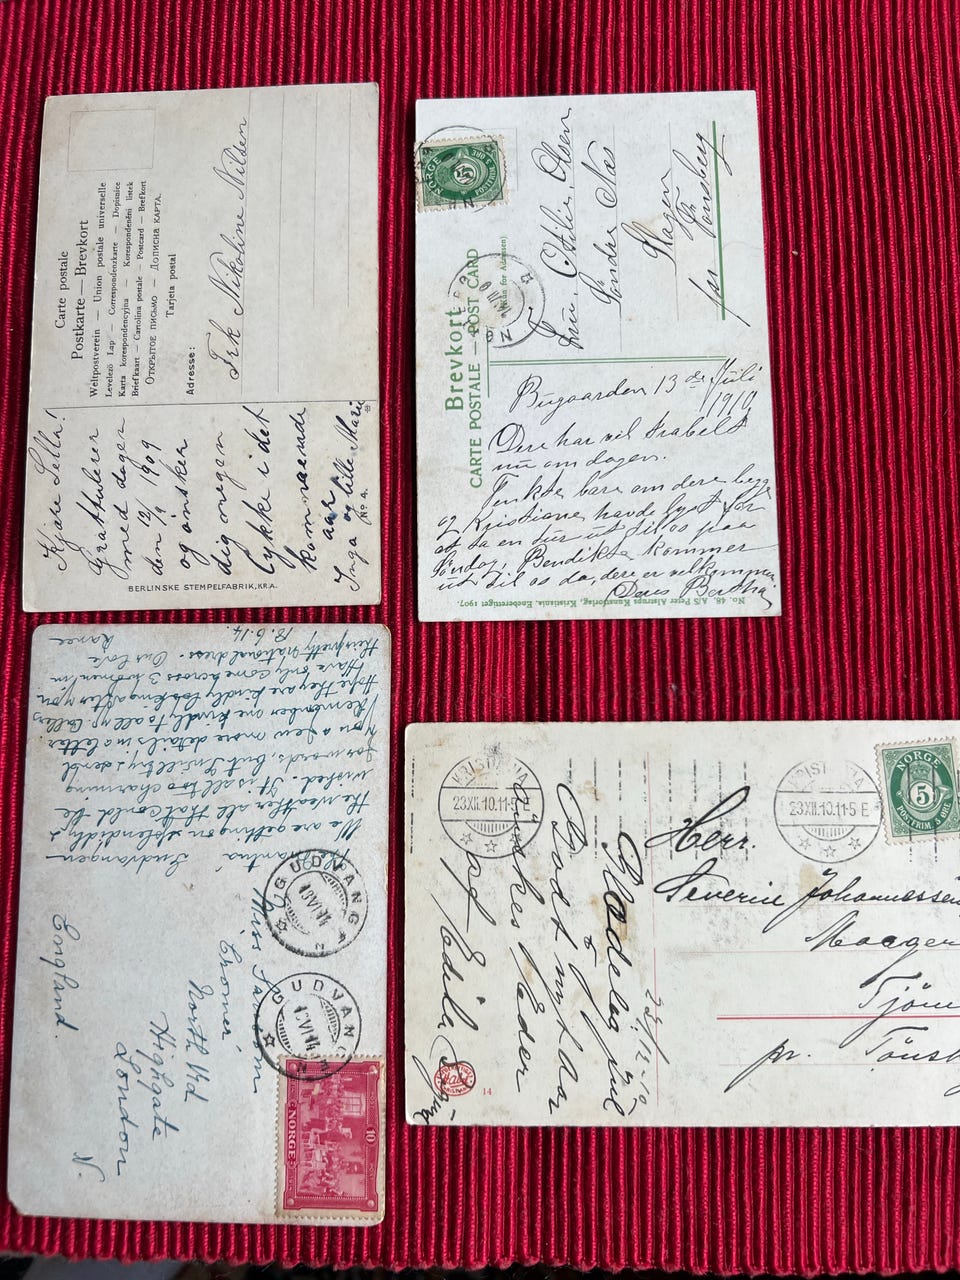 Carte postale
Postkarte — Brevkort
Weltpostverein — Union postale universelle
Levelező Lap — Correspondenzkarte — Dopisnice
Karta korespondencyjna — Korespondenční lístek
Briefkaart — Cartolina postale — Postcard — Brefkort
Открытое письмо — Дописна карта.
Tarjeta postal
Adresse:
Frk Nikoline Nilsen
Kjære Sella!
Grattulerer
med dagen
den 12/9 1909
og ønsker
dig megen
lykke i det
kommende
aar
Inga og lille Marie
No 4.
BERLINSKE STEMPELFABRIK, KR.A.
NORGE
5
POSTFRIM.
Brevkort
(Kun for Adressen)
CARTE POSTALE — POST CARD
Fru Otilie Olsen
Søndre Næs
Stagen
pr Tønsberg
13 de Juli
1910
Dere har vel travelt
nu om dagen.
Tenkte bare om dere begge
og Kristiane havde lyst for
at ta en tur ut til os paa
Søndag, Bendikte kommer
ut til os da, dere er velkommen
Deres Bertha
No. 48. A/S Peter Alstrups Kunstforlag, Kristiania. Eneberettiget 1907.
Gudvangen
We are getting on splendidly
the weather all that could be
wished. It is all too charming
for words, but I will try & send
you a few more details in a letter
Remember me kindly to all
Hope they are kindly looking after you
Have only come across 3 women in
their pretty national dress. Our love
18.6.14.
Miss
North Rd
Highgate
London
N.
England
GUDVANGEN
GUDVANGEN
10
NORGE
KRISTIANIA
23XII.10.11-5
KRISTIANIA
23XII.10.11-5 E
NORGE
5
POSTFRIM. 5 ØRE
Herr.
Severin Johannessen
Maager
Tjøm
pr. Tønsb
23/12-10
Glædelig jul
Godt nyt aar
ønskes Eder
af Edile
14